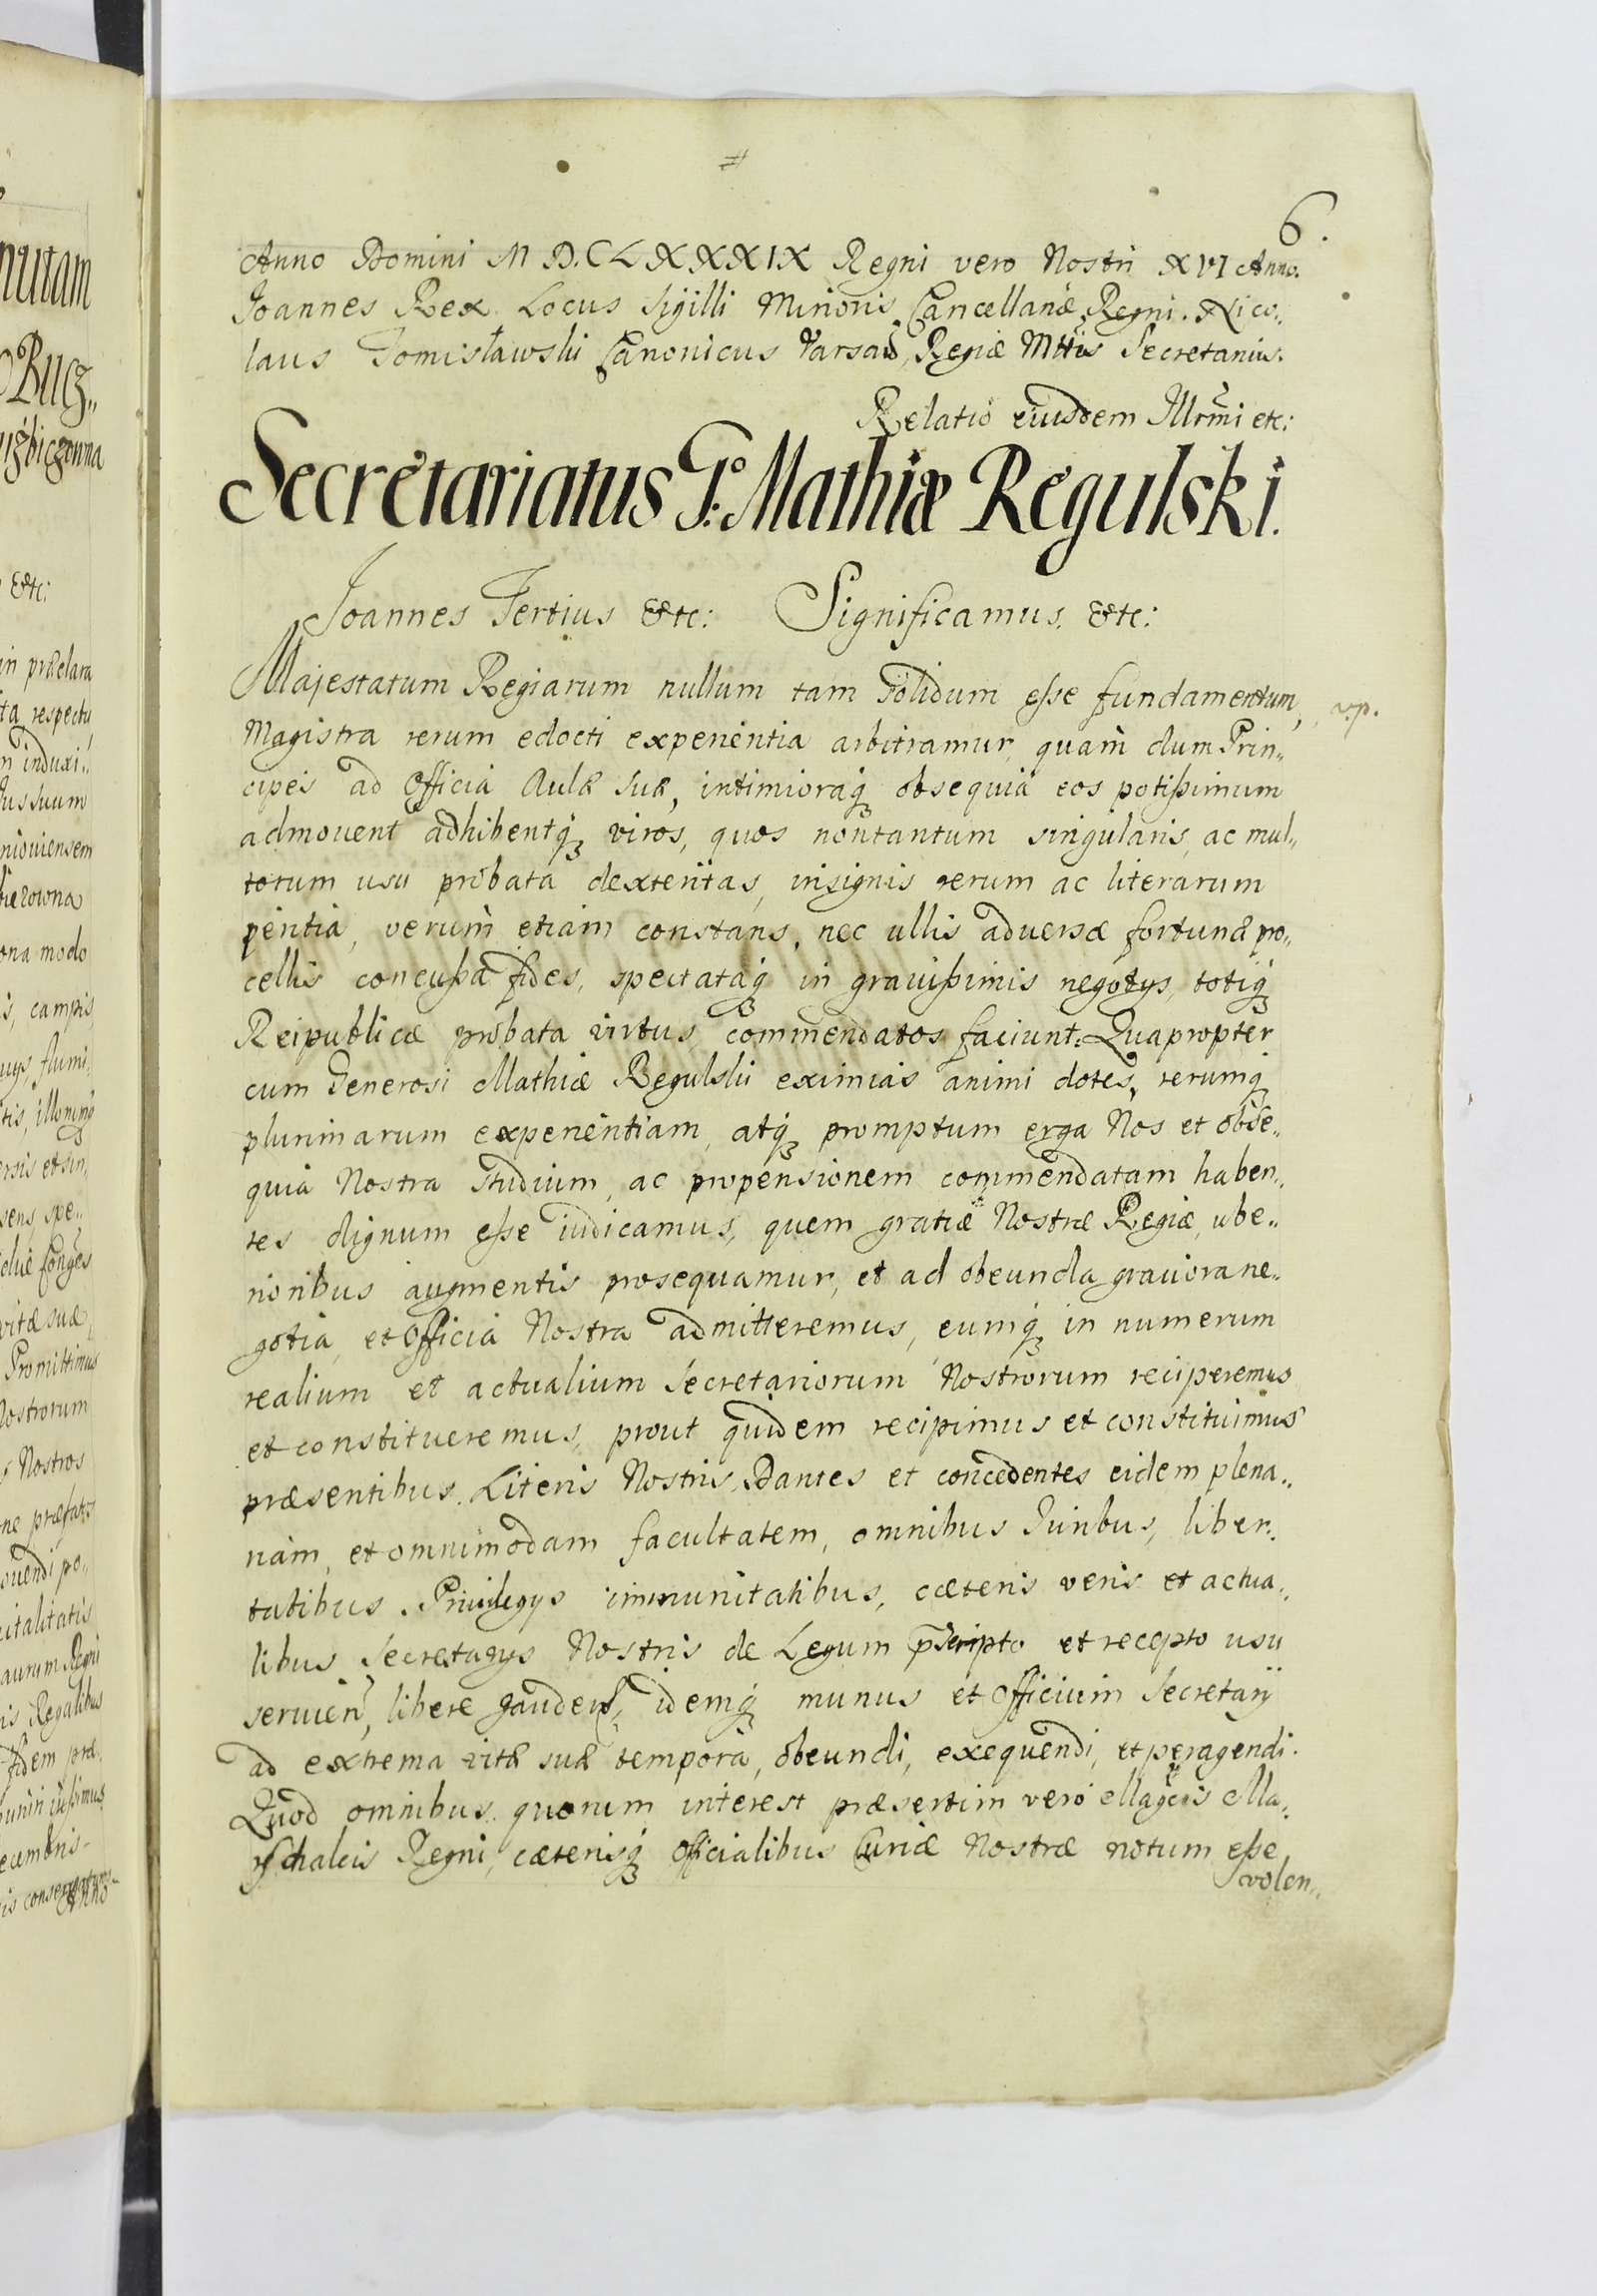 6.
Anno Domini M D.C L XXXIX Regni vero Nostri XVI Anno.
Joannes Rex. Locus Sigilli Minoris Cancellariæ Regni. Nico,,
laus Tomisławski Canonicus Varsaú, Regiæ Mttis Secretarius.
Relatio eiusdem Illrmi etc:
Secretariatus G. Mathiæ Regulski.
Joannes Tertius &tc: Significamus. &tc:
Majestatum Regiarum nullum tam solidum eße fundamentum,
Magistra rerum edocti experientia arbitramur, quam dum Prin,,
cipes ad Officia Aulæ suæ, intimioraq obsequia eos potißimum
admouent adhibentq viros, quos non tantum singularis, ac mul,,
torum usu probata dexteritas, insignis rerum ac literarum
peritia, verum etiam constans, nec ullis aduersæ fortunæ pro,,
cellis concußa fides, spectataq in grauißimis negotys, totiq
Reipublicæ probata virtus commendatos faciunt. Quapropter
cum Generosi Mathiæ Regulski eximias animi dotes, rerumq
plurimarum experientiam, atq promptum erga Nos et obse,,
quia Nostra studium, ac propensionem commendatam haben,,
tes dignum eße iudicamus, quem gratiæ Nostræ Regiæ, ube,,
rioribus augmentis prosequamur, et ad obeunda grauiora ne,,
gotia, et Officia Nostra admitteremus, eumq in numerum
realium et actualium Secretariorum Nostrorum reciperemus
et constitueremus, prout quidem recipimus et constituimus
præsentibus Literis Nostris. Dantes et concedentes eidem plena,,
riam, et omnimodam facultatem, omnibus Iuribus, liber,,
tatibus. Priuilegys immunitatibus, cæteris veris et actua,,
libus Secretarys Nostris de Legum pscripto et recepto usu
seruien, libere gauden, idemq munus et Officium Secretarij
ad extrema vitæ suæ tempora, obeundi, exequendi, et peragendi.
Quod omnibus quorum interest præsertim vero Magcis Ma,,
rschalcis Regni, cæterisq Officialibus Curiæ Nostræ notum eße
volen,,